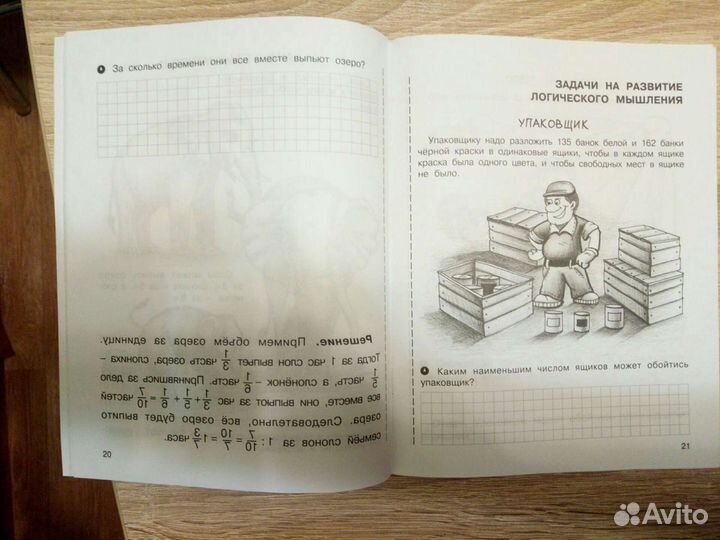 За сколько времени они все вместе выпьют озеро?
Решение. Примем объём озера за единицу.
Тогда за 1 час слон выпьет 1/3 часть озера, слониха –
1/5 часть, а слонёнок – 1/6 часть. Принявшись за дело
все вместе, они за час выпьют 1/3 + 1/5 + 1/6 = 7/10 частей
озера. Следовательно, всё озеро будет выпито
семьёй слонов за 1 : 7/10 = 10/7 = 1 3/7 часа.
20
ЗАДАЧИ НА РАЗВИТИЕ
ЛОГИЧЕСКОГО МЫШЛЕНИЯ
УПАКОВЩИК
Упаковщику надо разложить 135 банок белой и 162 банки
чёрной краски в одинаковые ящики, чтобы в каждом ящике
краска была одного цвета, и чтобы свободных мест в ящике
не было.
Каким наименьшим числом ящиков может обойтись
упаковщик?
21
Avito